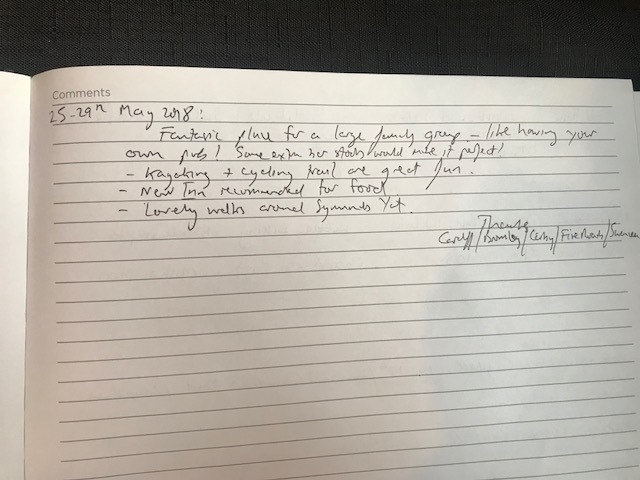 Comments
25-29th May 2018:
Fantastic place for a large family group - like having your
own pub! Some extra bar stools would make it perfect!
- Kayaking + cycling trail are great fun.
- New Inn recommended for food
- Lovely walks around Symonds Yat.
Cardiff/Bromley/ /Five Roads/Swansea